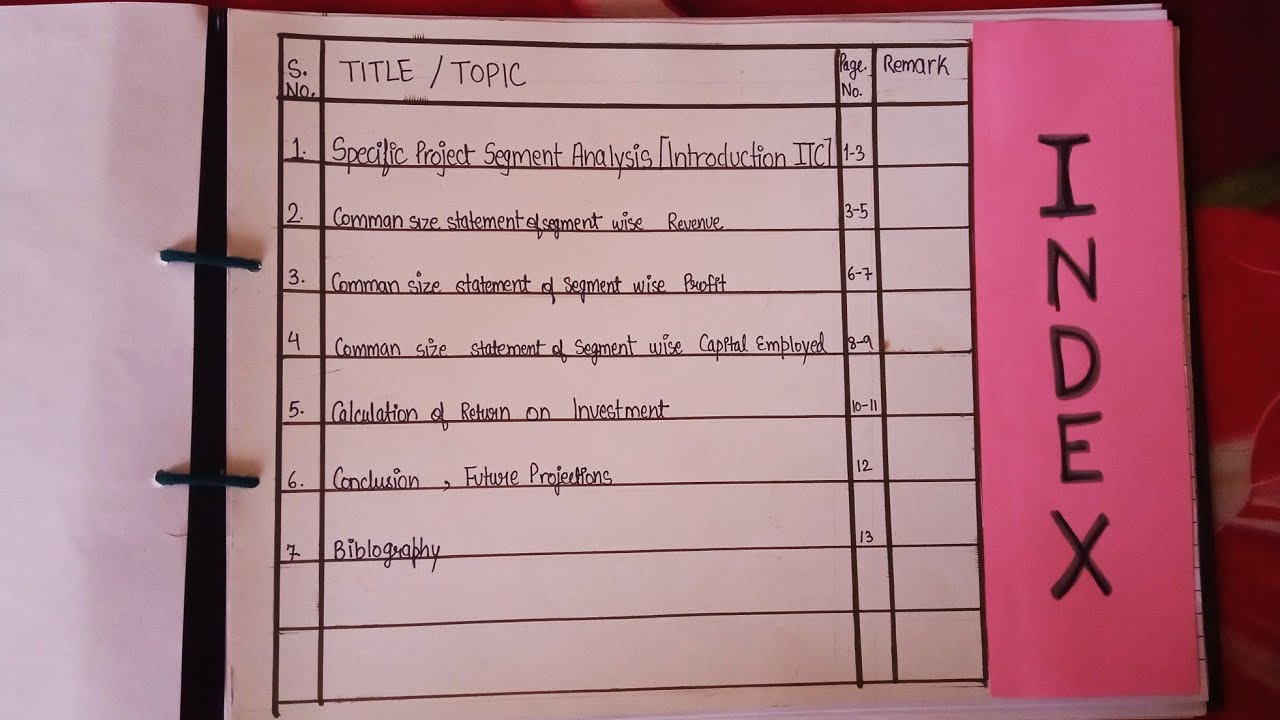 S. No. TITLE / TOPIC Page. No. Remark
1. Specific Project Segment Analysis [Introduction ITC] 1-3
2. Comman size statement of segment wise Revenue 3-5
3. Comman size statement of Segment wise Profit 6-7
4 Comman size statement of Segment wise Capital Employed 8-9
5. Calculation of Return on Investment 10-11
6. Conclusion , Future Projections 12
7 Biblography 13
INDEX